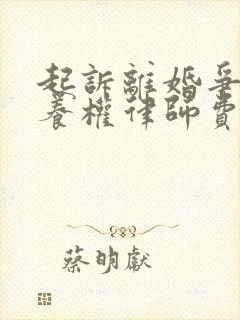 起訴離婚爭
養權律師費
蔡明獻